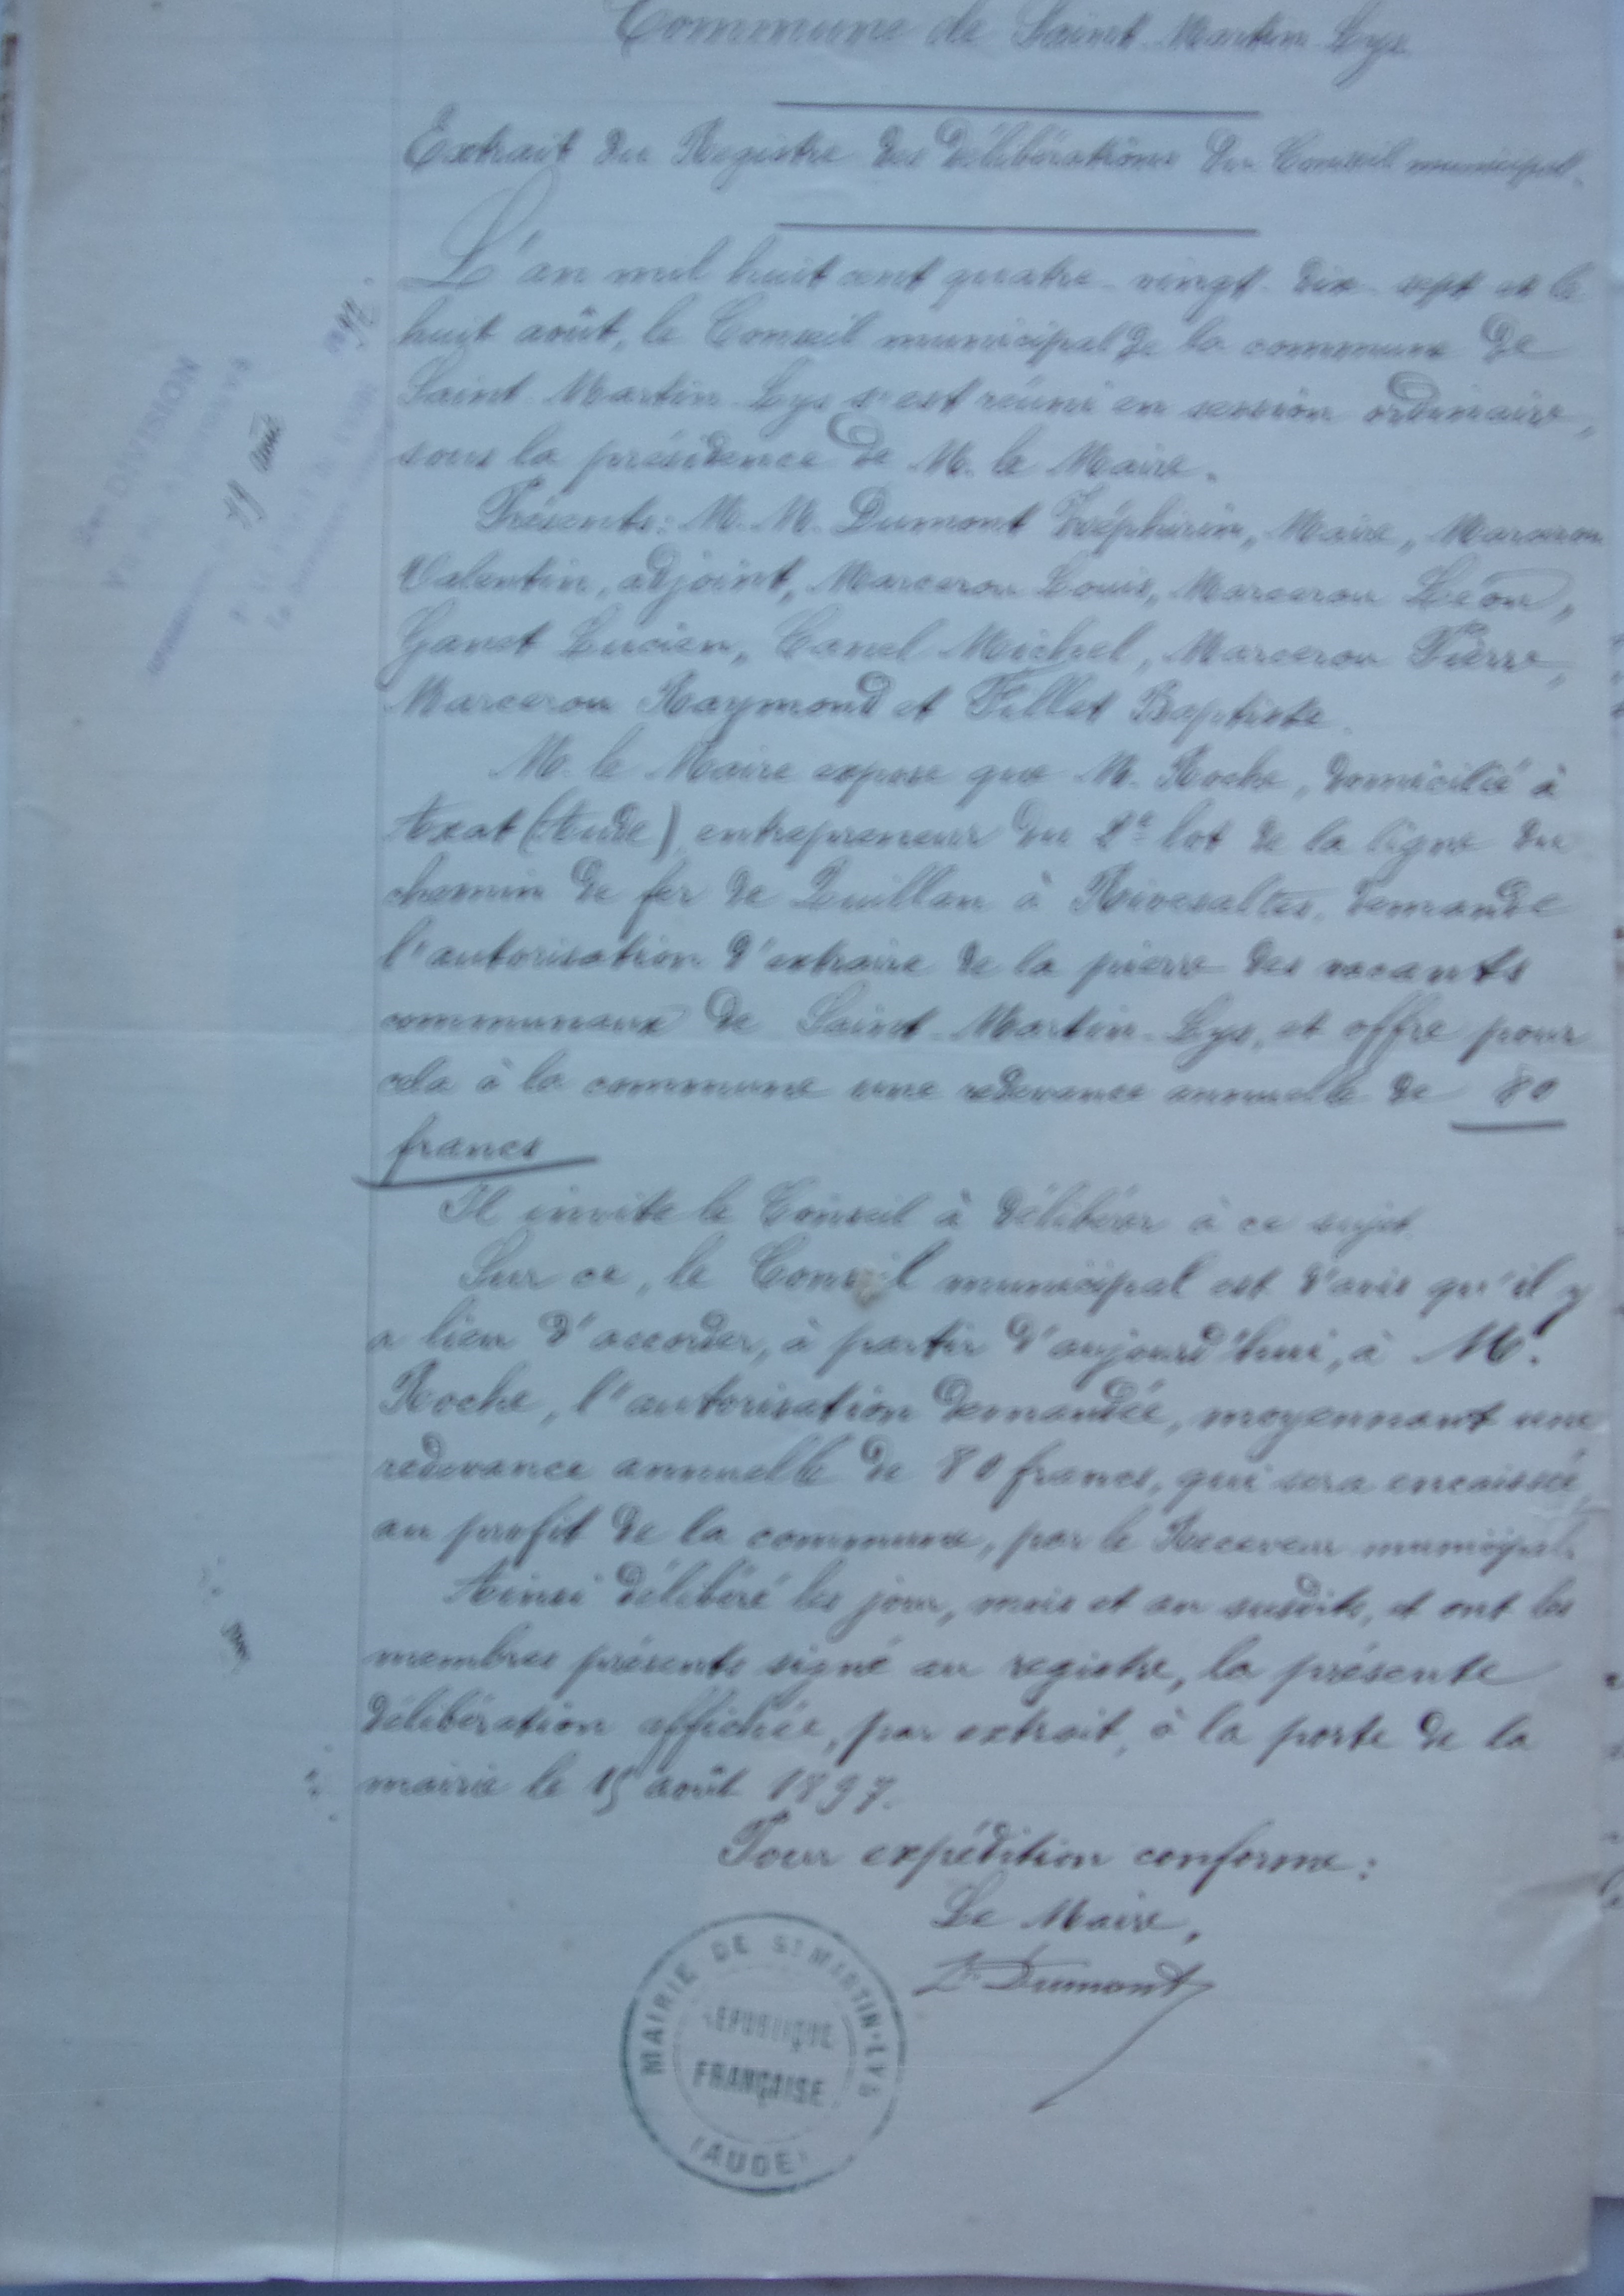 Commune de Saint-Martin-Lys
Extrait du Registre des Délibérations du Conseil municipal.
L'an mil huit cent quatre-vingt-dix-sept et le
huit août, le Conseil municipal de la commune de
Saint-Martin-Lys s'est réuni en session ordinaire,
sous la présidence de M. le Maire.
Présents: M. M. Dumont Zréphirin, Maire, Marceron
Valentin, adjoint, Marceron Louis, Marceron Léon,
Ganet Lucien, Canel Michel, Marceron Pierre,
Marceron Raymond et Fillet Baptiste.
M. le Maire expose que M. Roche, domicilié à
Axat (Aude) entrepreneur du 2e lot de la ligne du
chemin de fer de Quillan à Rivesaltes, demande
l'autorisation d'extraire de la pierre des vacants
communaux de Saint-Martin-Lys, et offre pour
cela à la commune une redevance annuelle de 80
francs
Il invite le Conseil à délibérer à ce sujet
Sur ce, le Conseil municipal est d'avis qu'il y
a lieu d'accorder, à partir d'aujourd'hui, à M.
Roche, l'autorisation demandée, moyennant une
redevance annuelle de 80 francs, qui sera encaissée,
au profit de la commune, par le Receveur municipal.
Ainsi délibéré les jour, mois et an susdits, et ont les
membres présents signé au registre, la présente
délibération affichée, par extrait, à la porte de la
mairie le 15 août 1897.
Pour expédition conforme:
Le Maire,
Z. Dumont
MAIRIE DE ST MARTIN-LYS
RÉPUBLIQUE
FRANÇAISE
(AUDE)
DIVISION
19 août